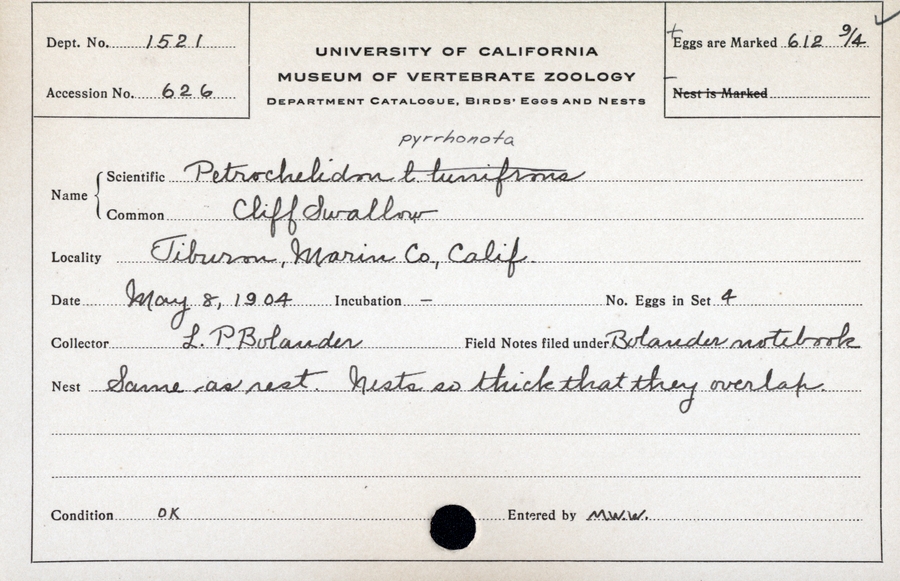 Dept. No. 1521
Accession No. 626
UNIVERSITY OF CALIFORNIA
MUSEUM OF VERTEBRATE ZOOLOGY
DEPARTMENT CATALOGUE, BIRDS' EGGS AND NESTS
Eggs are Marked 612 9/4
Nest is Marked
pyrrhonota
Name
Scientific Petrochelidon l. lunifrons
Common Cliff Swallow
Locality Tiburon, Marin Co., Calif.
Date May 8, 1904 Incubation – No. Eggs in Set 4
Collector L. P. Bolander Field Notes filed under Bolander notebook
Nest Same as rest. Nests so thick that they overlap.
Condition OK Entered by M.W.W.